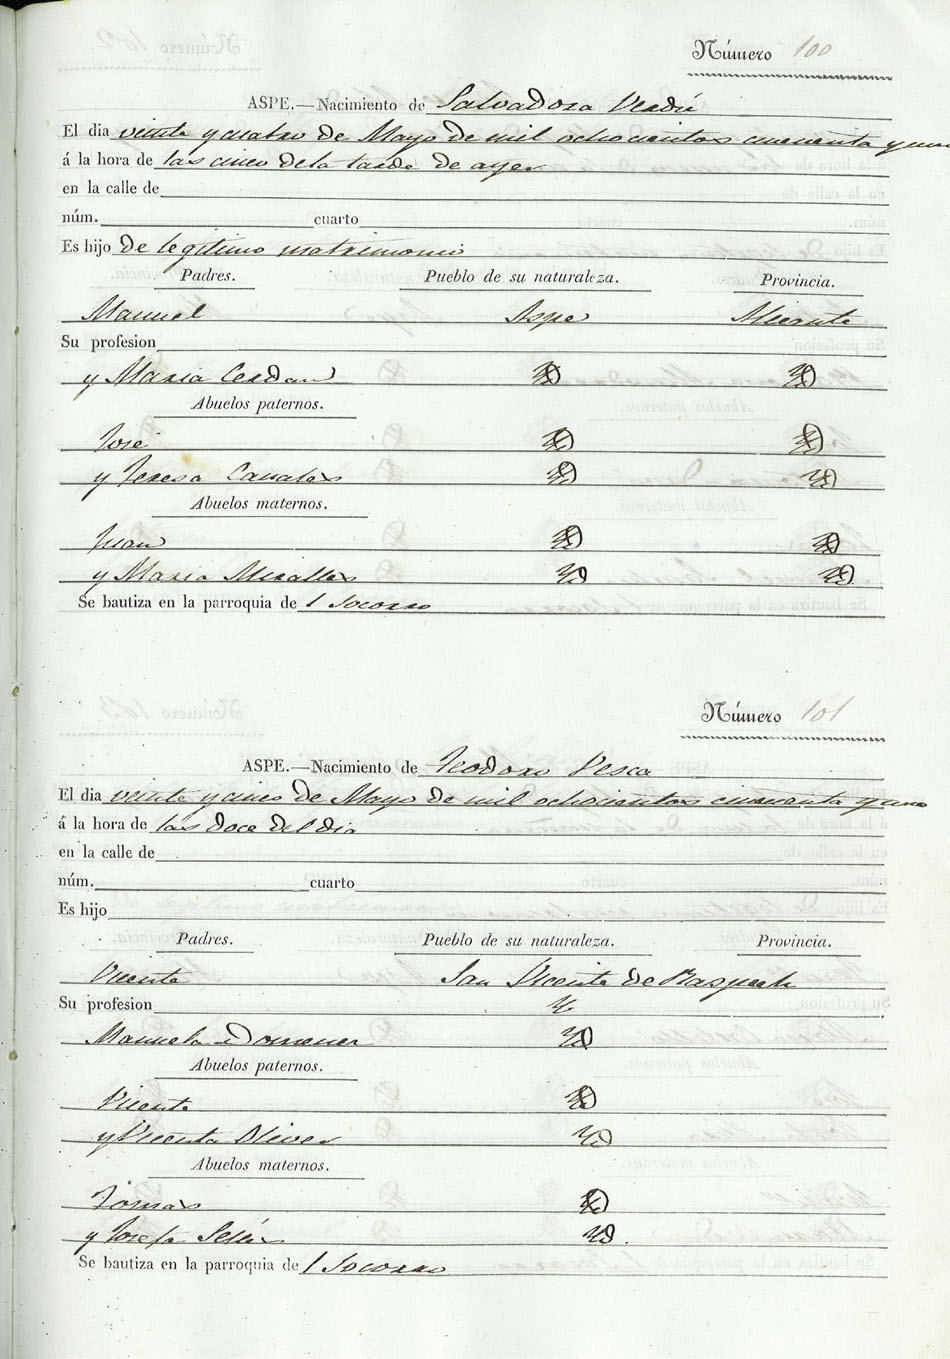 Número 100
ASPE.—Nacimiento de Salvadora Verdú
El dia veinte y cuatro de Mayo de mil ochocientos cincuenta y uno
á la hora de las cinco de la tarde de ayer
en la calle de
núm. cuarto
Es hijo de legitimo matrimonio
Padres. Pueblo de su naturaleza. Provincia.
Manuel Aspe Alicante
Su profesion
y Maria Cerdan Yd Yd
Abuelos paternos.
José Yd Yd
y Teresa Canales Yd Yd
Abuelos maternos.
Juan Yd Yd
y Maria Miralles Yd Yd
Se bautiza en la parroquia de l Socorro
Número 101
ASPE.—Nacimiento de Teodoro
El dia veinte y cinco de Mayo de mil ochocientos cincuenta y uno
á la hora de las doce del dia
en la calle de
núm. cuarto
Es hijo
Padres. Pueblo de su naturaleza. Provincia.
Vicente San Vicente de Raspech
Su profesion
Manuela Domener Yd
Abuelos paternos.
Vicente Yd
y Vicenta Oliver Yd
Abuelos maternos.
Tomas Yd
y Josefa Sellés Yd.
Se bautiza en la parroquia de l Socorro